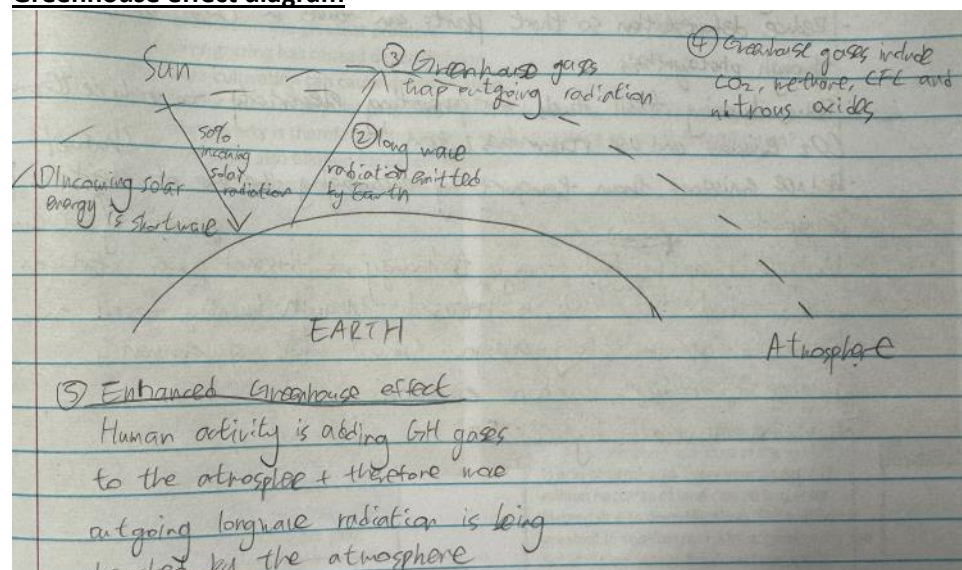 Greenhouse effect diagram
Sun
③ Greenhouse gases
trap outgoing radiation
④ Greenhouse gases include
CO2, methane, CFC and
nitrous oxides
50%
incoming
solar
radiation
② long wave
radiation emitted
by Earth
① Incoming solar
energy is shortwave
EARTH
Atmosphere
⑤ Enhanced Greenhouse effect
Human activity is adding GH gases
to the atmosphere + therefore more
outgoing longwave radiation is being
by the atmosphere